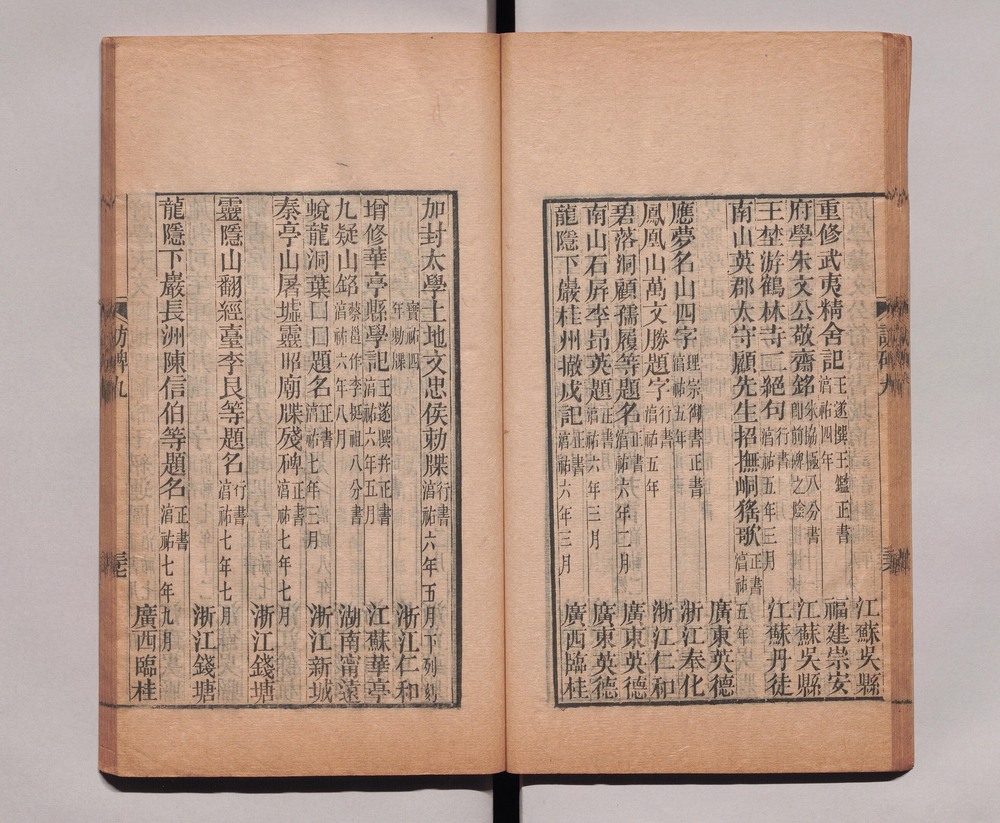 江蘇吳縣
重修武夷精舍記 王遂撰王鑑正書 湻祐四年 福建崇安
府學朱文公敬齋銘 朱協極八分書 即前碑之陰 江蘇吳縣
王埜游鶴林寺二絕句 行書 湻祐五年三月 江蘇丹徒
南山英郡太守顧先生招撫峒猺歌 正書 湻祐五年
廣東英德
應夢名山四字 理宗御書正書 湻祐五年 浙江奉化
鳳凰山萬文勝題字 行書 湻祐五年 浙江仁和
碧落洞顧孺履等題名 正書 湻祐六年二月 廣東英德
南山石屏李昴英題 正書 湻祐六年三月 廣東英德
龍隱下巖桂州撤戍記 正書 湻祐六年三月 廣西臨桂
加封太學土地文忠侯勅牒 行書 湻祐六年五月下列刻
寶祐四年勅牒 浙江仁和
增修華亭縣學記 王遂撰幷正書 湻祐六年五月 江蘇華亭
九疑山銘 蔡邕作李挺祖八分書 湻祐六年八月 湖南甯遠
蛻龍洞葉囗囗題名 正書 湻祐七年三月 浙江新城
秦亭山屠墟靈昭廟牒殘碑 正書 湻祐七年七月
浙江錢塘
靈隱山翻經臺李艮等題名 行書 湻祐七年七月
浙江錢塘
龍隱下巖長洲陳信伯等題名 正書 湻祐七年九月
廣西臨桂
訪碑九